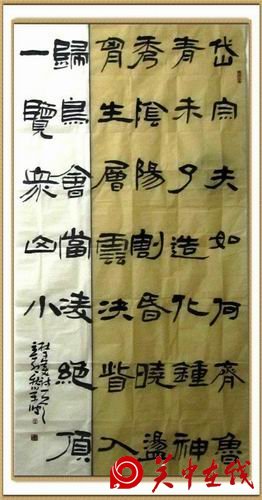 岱宗夫如何齊魯
青未了造化鍾神
秀陰陽割昏曉盪
胷生層雲決眥入
歸鳥會當凌絕頂
一覽衆山小
关中在线